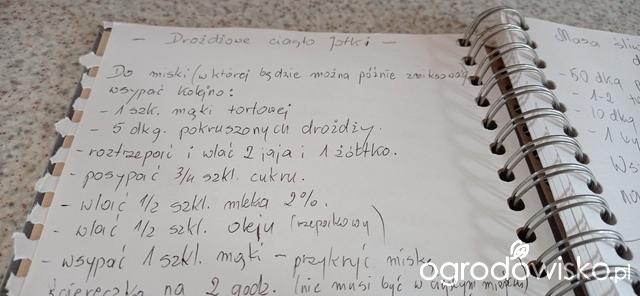 - Drożdżowe ciasto Jotki -
Do miski (w której będzie można późnie zmiksować)
wsypać kolejno:
- 1 szk. mąki tortowej
- 5 dkg. pokruszonych drożdży.
- roztrzepać i wlać 2 jaja i 1 żółtko.
- posypać 3/4 szkl. cukru.
- wlać 1/2 szkl. mleka 2%.
- wlać 1/2 szkl. oleju (rzepakowy)
- wsypać 1 szkl. mąki - przykryć miskę
ściereczką na 2 godz. (nie musi być w ciepłym miejscu)
Masa
- 50 dkg
- 1-2
- 10 dkg
- 1
na
ogrodowisko.pl